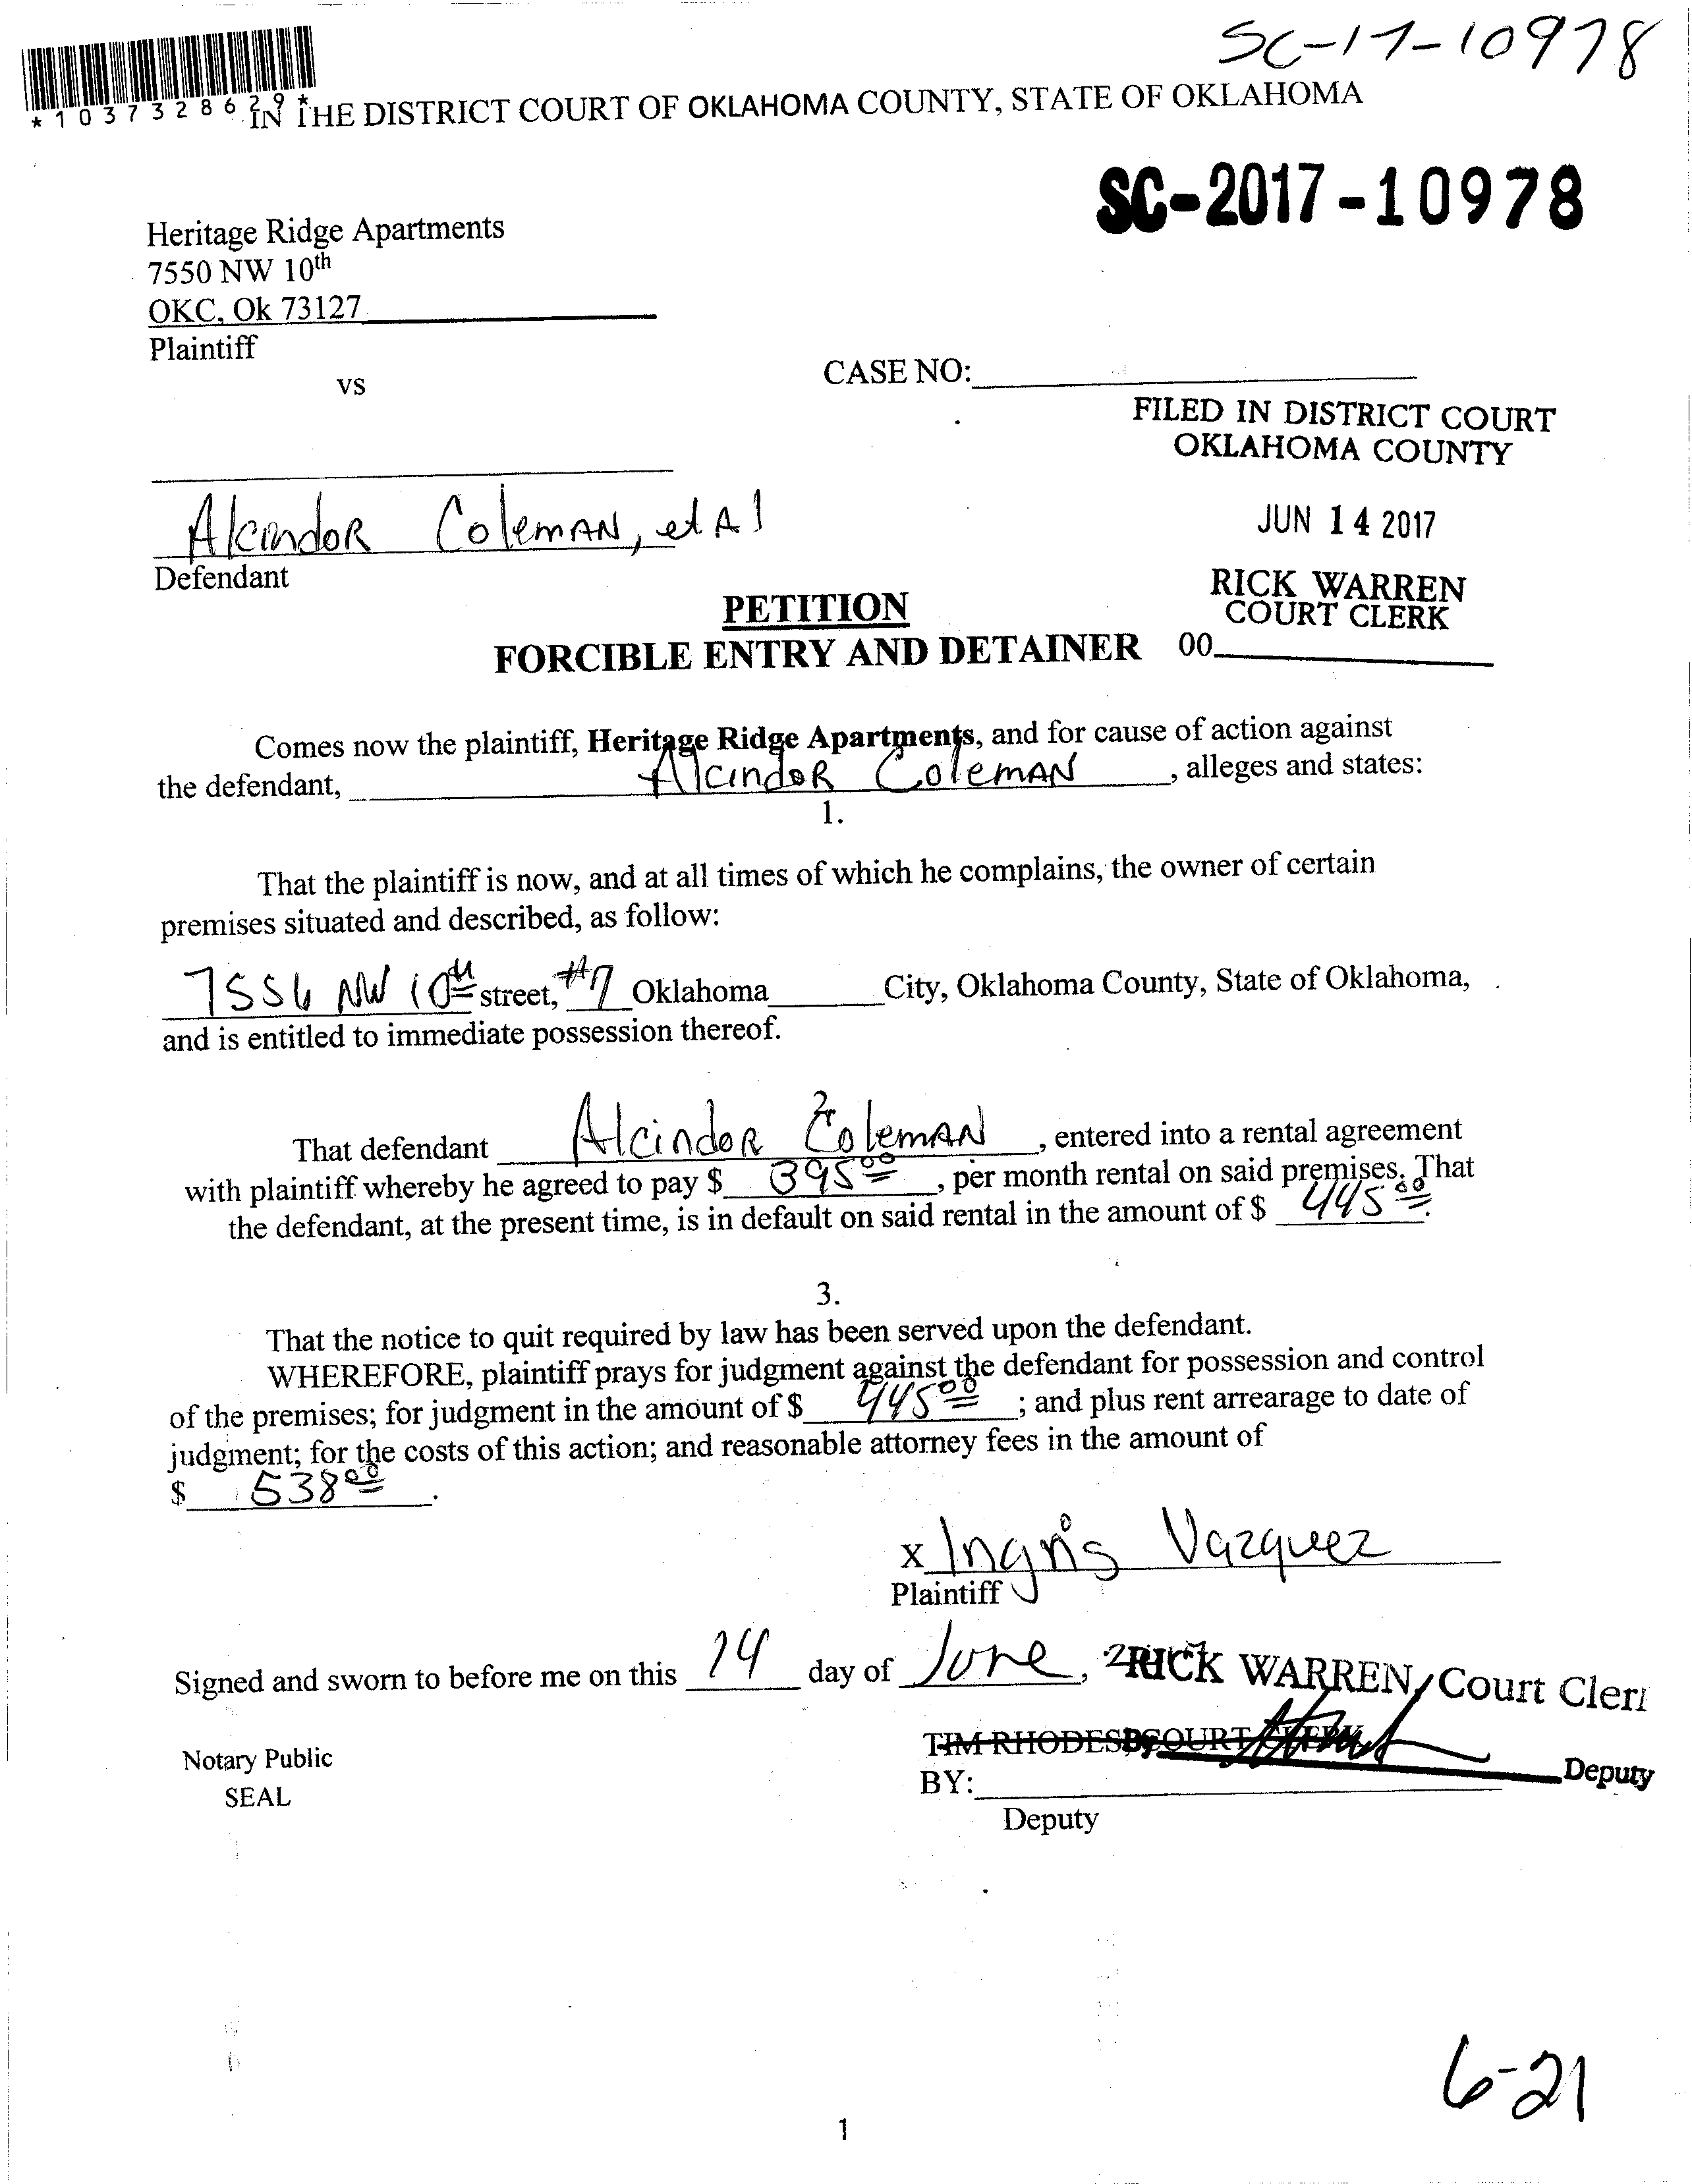 SC-17-10978
*1037328629*
IN THE DISTRICT COURT OF OKLAHOMA COUNTY, STATE OF OKLAHOMA
SC-2017-10978
Heritage Ridge Apartments
7550 NW 10th
OKC, Ok 73127
Plaintiff
vs
CASE NO:
FILED IN DISTRICT COURT
OKLAHOMA COUNTY
JUN 14 2017
Alcindor Coleman, et Al
Defendant
RICK WARREN
COURT CLERK
00
PETITION
FORCIBLE ENTRY AND DETAINER
Comes now the plaintiff, Heritage Ridge Apartments, and for cause of action against
the defendant, Alcindor Coleman, alleges and states:
1.
That the plaintiff is now, and at all times of which he complains, the owner of certain
premises situated and described, as follow:
7556 NW 10th street, #7 Oklahoma City, Oklahoma County, State of Oklahoma,
and is entitled to immediate possession thereof.
2.
That defendant Alcindor Coleman, entered into a rental agreement
with plaintiff whereby he agreed to pay $ 395 00, per month rental on said premises. That
the defendant, at the present time, is in default on said rental in the amount of $ 445 00.
3.
That the notice to quit required by law has been served upon the defendant.
WHEREFORE, plaintiff prays for judgment against the defendant for possession and control
of the premises; for judgment in the amount of $ 445 00; and plus rent arrearage to date of
judgment; for the costs of this action; and reasonable attorney fees in the amount of
$ 538 00.
x Ingris Vazquez
Plaintiff
Signed and sworn to before me on this 14 day of June,
RICK WARREN, Court Cler
TIM RHODES, COURT CLERK
By
Deputy
Notary Public
SEAL
BY:
Deputy
6-21
1